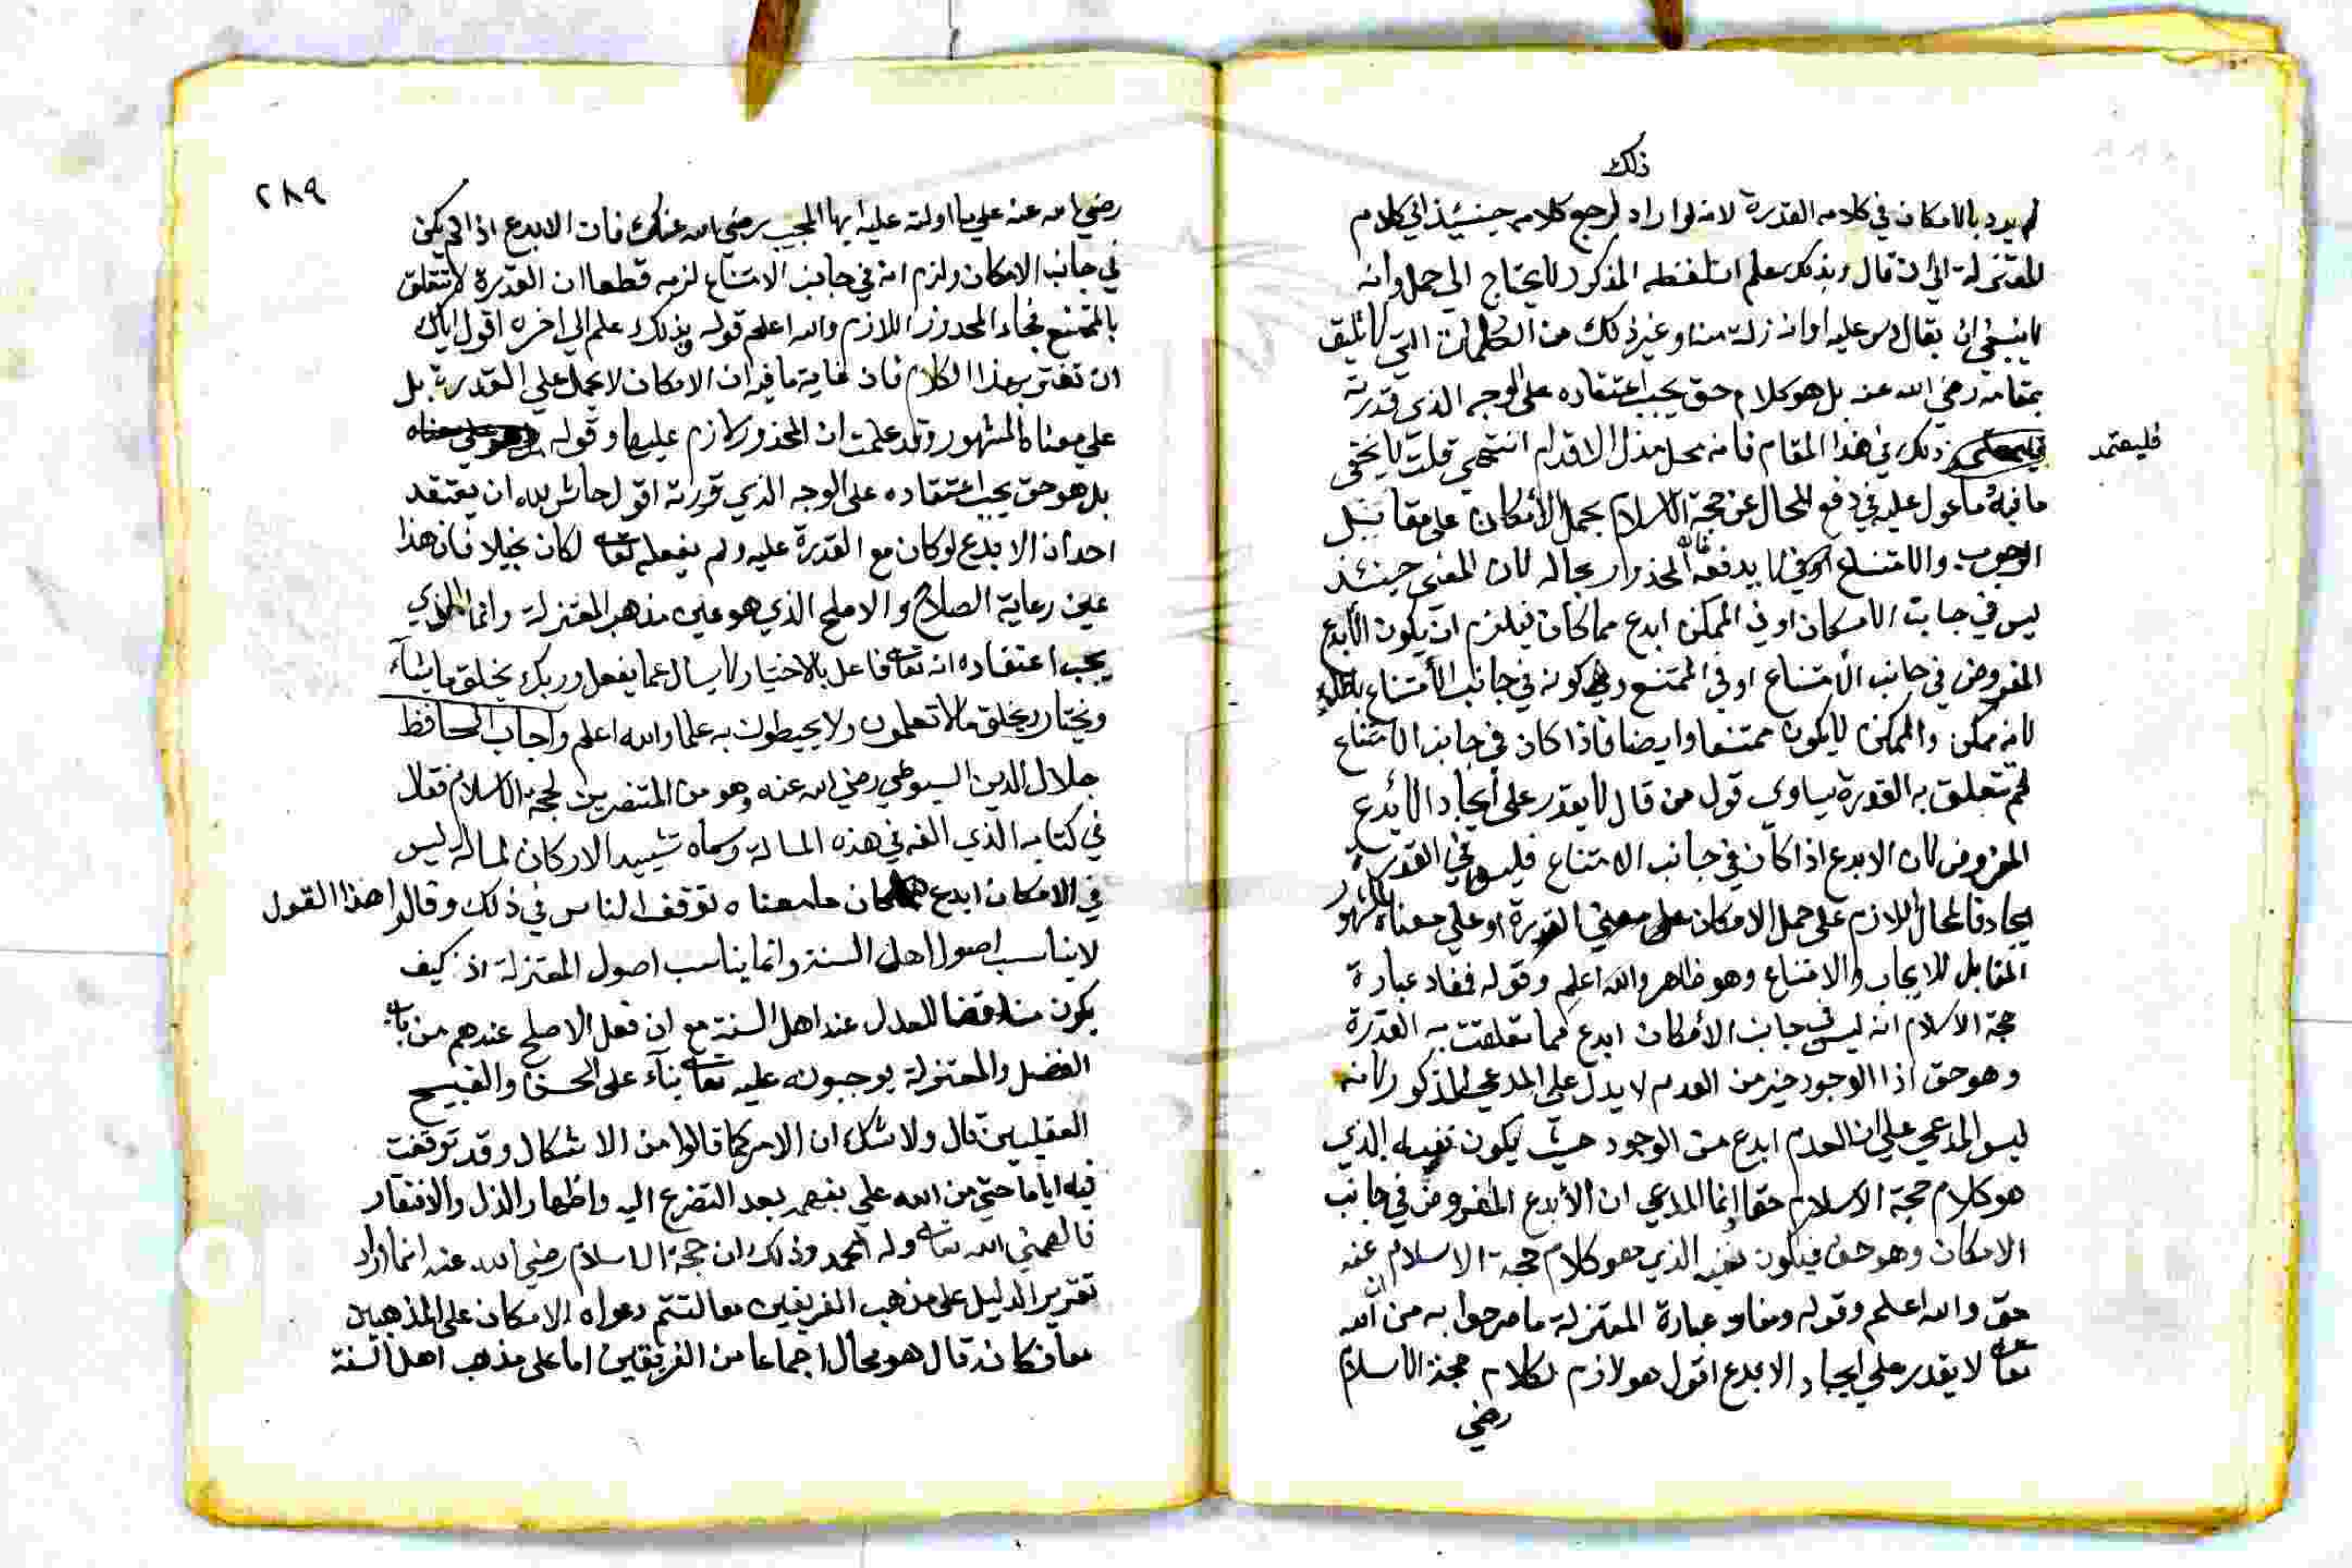 ذلك
لم يرد بالامكان في كلامه القدرة لانه لو اراد لرجع كلامه حينئذ الي كلام
المعتزلة الي ان قال وبذلك علم ان لفظه المذكور لا يحتاج الي حمل وانه
لا ينبغي ان يقال دس عليه او انه زلة منه او غير ذلك من الكلمات التي لا تليق
بمقامه رضي الله عنه بل هو كلام حق يجب اعتقاده على الوجه الذي قررته
فليعتمد ذلك في هذا المقام فانه محل مزال الاقدام انتهي قلت لا يخفى
ما فيه ما عول عليه في دفع المحال عن حجة الاسلام بحمل الأمكان على مقابل
الوجوب والامتناع لا يدفعه فان المحذور بحاله لان المعني حينئذ
ليس في جانب الامكان او في الممكن ابدع مما كان فيلزم ان يكون الأبدع
المفروض في جانب الأمتناع او في الممتنع وكونه في جانب الأمتناع باطل
لانه ممكن والممكن لا يكون ممتنعا وايضا فاذا كان في جانب الامتناع
لم تتعلق به القدرة يساوي قول من قال لا يقدر على أيجاد الأبدع
المفروض لان الابدع اذا كان في جانب الامتناع فليس في القدرة
ايجاده فالمحال اللازم على حمل الامكان على معني القدرة او على معناه المشهور
المقابل للايجاب والامتناع وهو ظاهر والله اعلم وقوله فمفاد عبارة
حجة الاسلام انه ليس في جانب الأمكان ابدع مما تعلقت به القدرة
وهو حق اذ الوجود خير من العدم لا يدل على المدعي المذكور لانه
ليس المدعي على ان العدم ابدع من الوجود حيث يكون نفيه الذي
هو كلام حجة الاسلام حقا وانما المدعي ان الأبدع المفروض في جانب
الامكان وهو حق فيكون نفيه الذي هو كلام حجة الاسلام عنه
حق والله اعلم وقوله ومفاد عبارة المعتزلة ما صرحوا به من ان الله
تعالى لا يقدر علي ايجاد الابدع اقول هو لازم لكلام حجة الاسلام
رضي
فليعتمد
٢٨٩
رضي الله عنه علي ما اولته عليه ايها المجيب رضي الله عنك فان الابدع اذا لم يكن
في جانب الامكان ولزم انه في جانب الامتناع لزمه قطعا ان القدرة لا تتعلق
بالممتنع فجاء المحذور اللازم والله اعلم قوله وبذلك علم الي اخره اقول اياك
ان تغتر بهذا الكلام فان غاية ما فيه ان الامكان لا يحمل علي القدرة بل
علي معناه المشهور وقد علمت ان المحذور لازم عليهما وقوله
بل هو حق يجب اعتقاده على الوجه الذي قررته اقول حاش لله ان يعتقد
احد ان الابدع لو كان مع القدرة عليه ولم يفعله تعالى لكان بخيلا فان هذا
عين رعاية الصلاح والاصلح الذي هو عين مذهب المعتزلة وانما الذي
يجب اعتقاده انه تعالى فاعل بالاختيار لا يسال عما يفعل وربك يخلق ما يشآء
ويختار ويخلق ما لا تعلمون ولا يحيطون به علما والله اعلم واجاب الحافظ
جلال الدين السيوطي رضي الله عنه وهو من المنتصرين لحجة الاسلام فقال
في كتابه الذي الفه في هذه المسالة وسماه تشييد الاركان لمسالة ليس
في الامكان ابدع مما كان ما معناه توقف الناس في ذلك وقالوا هذا القول
لا يناسب اصول اهل السنة وانما يناسب اصول المعتزلة اذ كيف
يكون مناقضا للعدل عند اهل السنة مع ان فعل الاصلح عندهم من باب
الفضل والمعتزلة يوجبونه عليه تعالى بنآء على الحسن والقبيح
العقليين قال ولا شك ان الامر كما قالوا من الاشكال وقد توقفت
فيه اياما حتي من الله علي بفهمه بعد التضرع اليه واظهار الذل والافتقار
فالهمني الله تعالى وله الحمد وذلك ان حجة الاسلام رضي الله عنه انما اراد
تقرير الدليل على مذهب الفريقين معا لتتم دعواه الامكان على المذهبين
معا فكانه قال هو محال اجماعا من الفريقين اما على مذهب اهل السنة